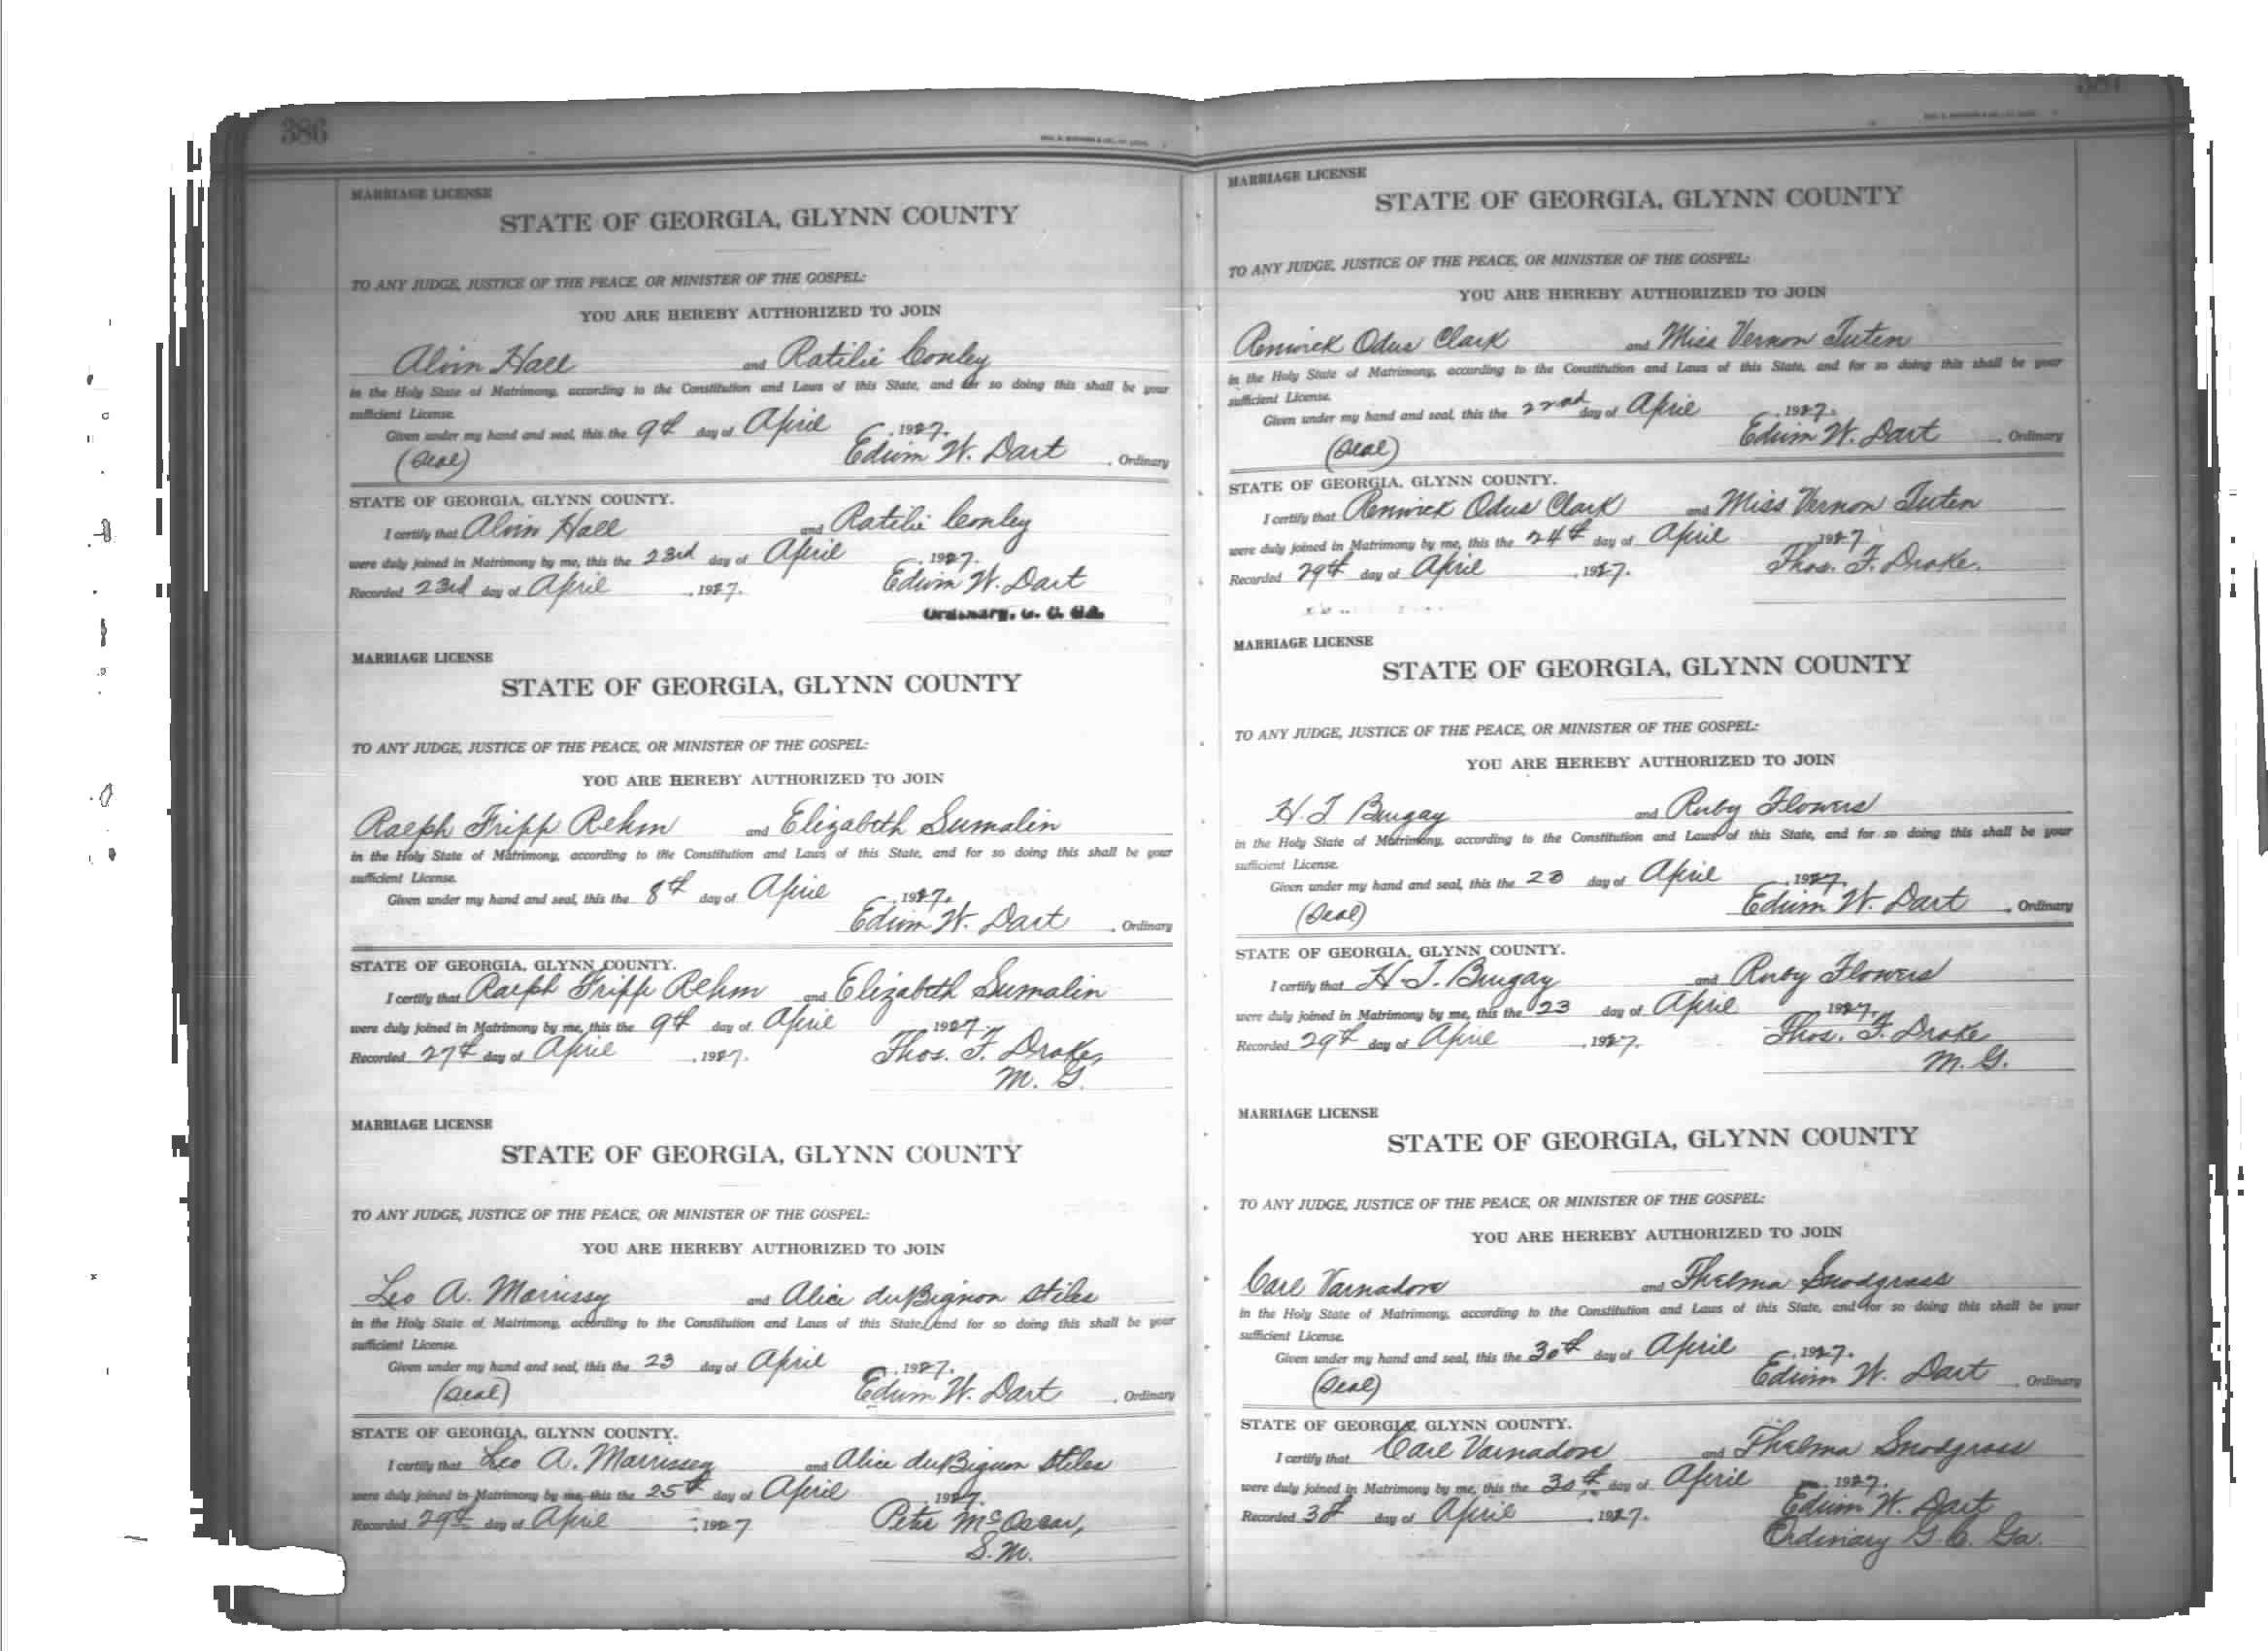 386
MARRIAGE LICENSE
STATE OF GEORGIA, GLYNN COUNTY
TO ANY JUDGE, JUSTICE OF THE PEACE, OR MINISTER OF THE GOSPEL:
YOU ARE HEREBY AUTHORIZED TO JOIN
Alvin Hall and Ratilie Conley
in the Holy State of Matrimony, according to the Constitution and Laws of this State, and for so doing this shall be your
sufficient License.
Given under my hand and seal, this the 9th day of April, 1927.
(Seal) Edwin W. Dart, Ordinary
STATE OF GEORGIA, GLYNN COUNTY.
I certify that Alvin Hall and Ratilie Conley
were duly joined in Matrimony by me, this the 23rd day of April, 1927.
Recorded 23rd day of April, 1927. Edwin W. Dart
Ordinary, G. C. Ga.
MARRIAGE LICENSE
STATE OF GEORGIA, GLYNN COUNTY
TO ANY JUDGE, JUSTICE OF THE PEACE, OR MINISTER OF THE GOSPEL:
YOU ARE HEREBY AUTHORIZED TO JOIN
Ralph Fripp Rehm and Elizabeth Sumalin
in the Holy State of Matrimony, according to the Constitution and Laws of this State, and for so doing this shall be your
sufficient License.
Given under my hand and seal, this the 8th day of April, 1927.
Edwin W. Dart, Ordinary
STATE OF GEORGIA, GLYNN COUNTY.
I certify that Ralph Fripp Rehm and Elizabeth Sumalin
were duly joined in Matrimony by me, this the 9th day of April, 1927.
Recorded 27th day of April, 1927. Thos. F. Drake,
M. G.
MARRIAGE LICENSE
STATE OF GEORGIA, GLYNN COUNTY
TO ANY JUDGE, JUSTICE OF THE PEACE, OR MINISTER OF THE GOSPEL:
YOU ARE HEREBY AUTHORIZED TO JOIN
Leo A. Morrissy and Alice duBignon Stiles
in the Holy State of Matrimony, according to the Constitution and Laws of this State, and for so doing this shall be your
sufficient License.
Given under my hand and seal, this the 23 day of April, 1927.
(Seal) Edwin W. Dart, Ordinary
STATE OF GEORGIA, GLYNN COUNTY.
I certify that Leo A. Morrissey and Alice duBignon Stiles
were duly joined in Matrimony by me, this the 25th day of April 1927.
Recorded 29th day of April, 1927 Peter McOscar,
S.M.
MARRIAGE LICENSE
STATE OF GEORGIA, GLYNN COUNTY
TO ANY JUDGE, JUSTICE OF THE PEACE, OR MINISTER OF THE GOSPEL:
YOU ARE HEREBY AUTHORIZED TO JOIN
Renwick Odus Clark and Miss Vernon Tuten
in the Holy State of Matrimony, according to the Constitution and Laws of this State, and for so doing this shall be your
sufficient License.
Given under my hand and seal, this the 22nd day of April, 1927.
(Seal) Edwin W. Dart, Ordinary
STATE OF GEORGIA, GLYNN COUNTY.
I certify that Renwick Odus Clark and Miss Vernon Tuten
were duly joined in Matrimony by me, this the 24th day of April, 1927.
Recorded 29th day of April, 1927. Thos. F. Drake.
MARRIAGE LICENSE
STATE OF GEORGIA, GLYNN COUNTY
TO ANY JUDGE, JUSTICE OF THE PEACE, OR MINISTER OF THE GOSPEL:
YOU ARE HEREBY AUTHORIZED TO JOIN
H T Burgay and Ruby Flowers
in the Holy State of Matrimony, according to the Constitution and Laws of this State, and for so doing this shall be your
sufficient License.
Given under my hand and seal, this the 23 day of April, 1927.
(Seal) Edwin W. Dart, Ordinary
STATE OF GEORGIA, GLYNN COUNTY.
I certify that H. T. Burgay and Ruby Flowers
were duly joined in Matrimony by me, this the 23 day of April, 1927.
Recorded 29th day of April, 1927. Thos. F. Drake
M. G.
MARRIAGE LICENSE
STATE OF GEORGIA, GLYNN COUNTY
TO ANY JUDGE, JUSTICE OF THE PEACE, OR MINISTER OF THE GOSPEL:
YOU ARE HEREBY AUTHORIZED TO JOIN
Carl Varnadore and Thelma Snodgrass
in the Holy State of Matrimony, according to the Constitution and Laws of this State, and for so doing this shall be your
sufficient License.
Given under my hand and seal, this the 30th day of April, 1927.
(Seal) Edwin W. Dart, Ordinary
STATE OF GEORGIA, GLYNN COUNTY.
I certify that Carl Varnadore and Thelma Snodgrass
were duly joined in Matrimony by me, this the 30th day of April, 1927.
Recorded day of April, 1927. Edwin W. Dart
Ordinary G. C. Ga.